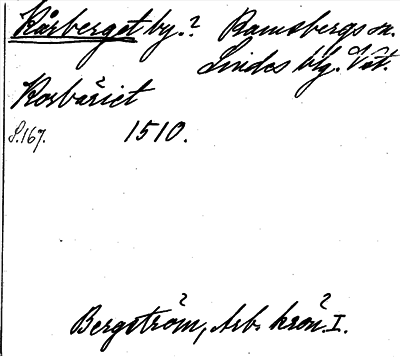 Kårberget by.? Ramsbergs sn.
Lindes blg. Vstm.
Korbäriet
S. 167. 1510.
Bergström, Arb. krön. I.